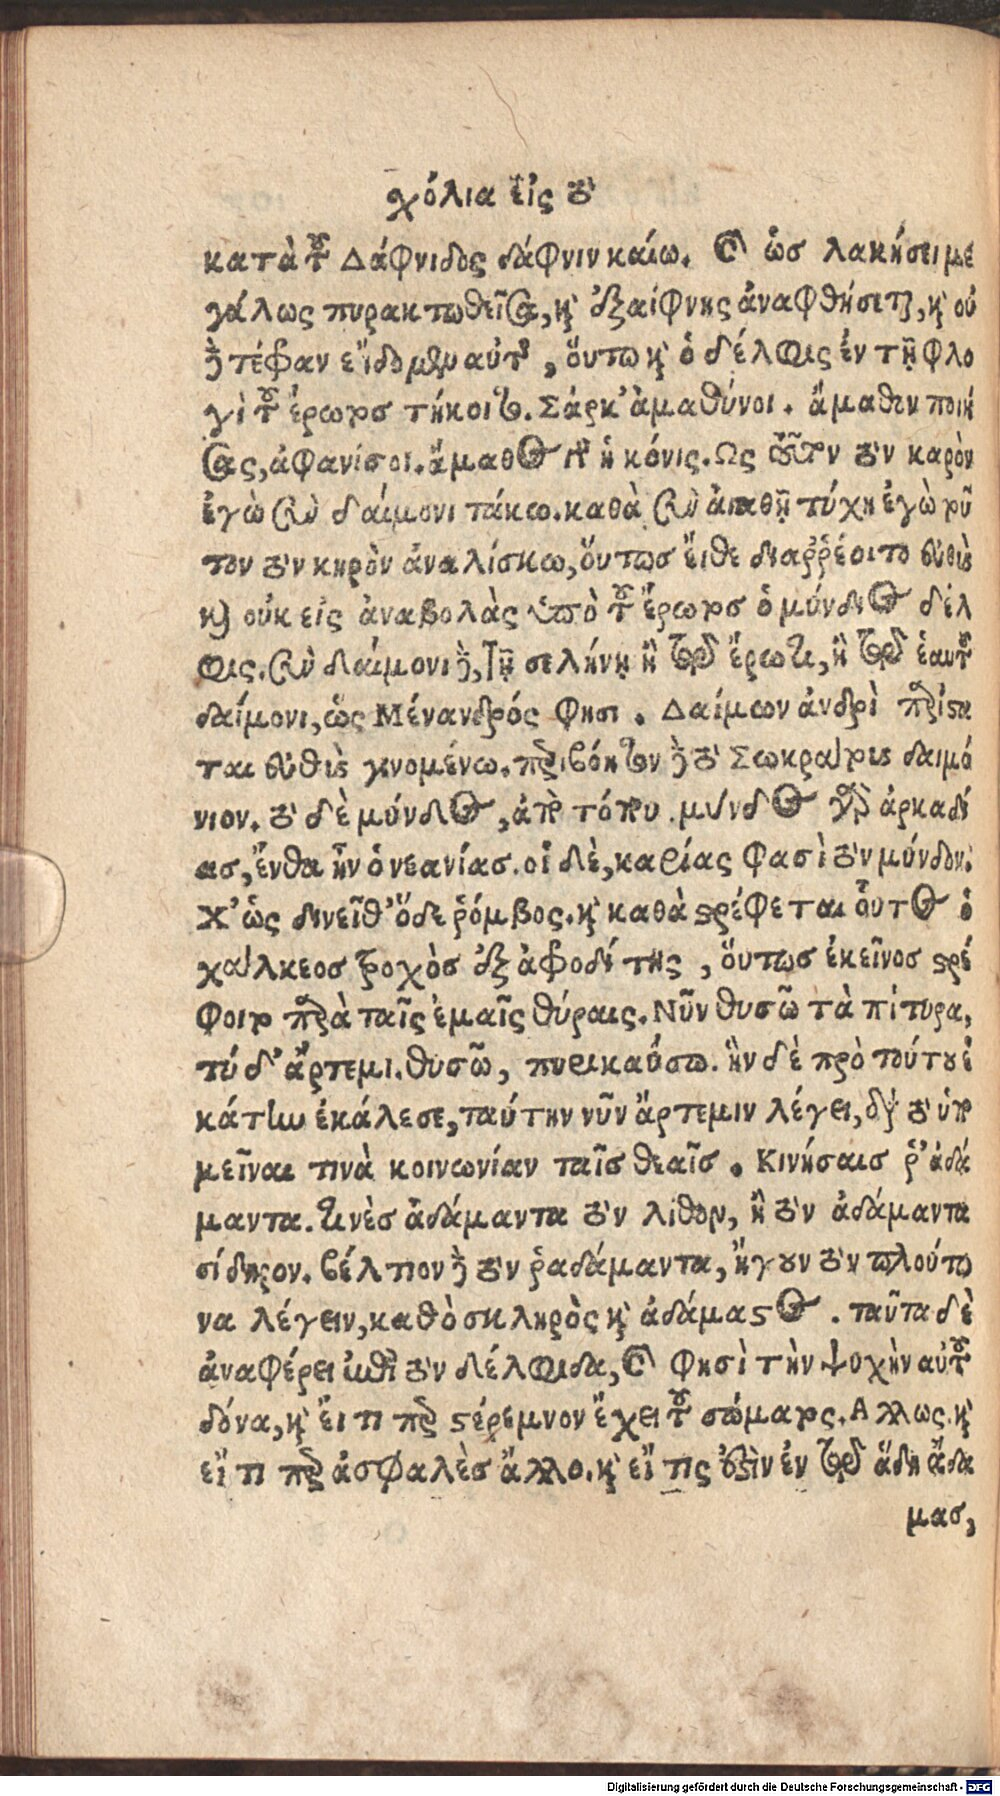 χόλια εἰς τὸ
κατὰ τοῦ Δάφνιδος δάφνιν καίω. καὶ ὡσ λακήσει με
γάλως πυρακτωθεῖσα, καὶ ἐξαίφνης ἀναφθήσεται, καὶ οὐ
δὲ τέφραν εἴδομεν αὐτοῦ, οὕτω καὶ ὁ δέλφις ἐν τῇ φλο
γὶ τοῦ ἔρωτοσ τήκοιτο. Σάρκ' ἀμαθύνοι. ἄμαθον ποιή
σας, ἀφανίσοι. ἄμαθος γὰρ ἡ κόνις. Ως τοῦτον τὸν καρὸν
ἐγὼ σὺν δαίμονι τάκω. καθὰ σὺν ἀγαθῇ τύχη ἐγὼ τοῦ
τον τὸν κηρὸν ἀναλίσκω, οὕτωσ εἴθε διαῤῥέοιτο εὐθὺς
καὶ οὐκ εἰς ἀναβολὰς ὑπὸ τοῦ ἔρωτοσ ὁ μύνδιος δέλ
φις. σὺν δαίμονι δὲ, τῇ σελήνῃ ἢ τῷ ἔρωτι, ἢ τῷ ἑαυτοῦ
δαίμονι, ὡς Μένανδρός φησι. Δαίμων ἀνδρὶ παρίστα
ται εὐθὺς γινομένω. περιβόητον δὲ τὸ Σωκράτους δαιμό
νιον. τὸ δὲ μύνδιος, ἀπὸ τόπου. μύνδος γὰρ ἀρκαδί
ασ, ἔνθα ἦν ὁ νεανίασ. οἱ δὲ, καρίας φασὶ τὸν μύνδον.
Χ' ὡς δινεῖθ' ὅδε ῥόμβος. καὶ καθὰ στρέφεται οὗτος ὁ
χαλκεοσ τροχὸσ ἐξ ἀφροδίτης, οὕτωσ ἐκεῖνοσ στρέ
φοιτο παρὰ ταῖς ἐμαῖς θύραις. Νῦν θυσῶ τὰ πίτυρα,
τύ δ' ἄρτεμι. θυσῶ, πυρικαύσω. ἣν δὲ πρὸ τούτου ἑ
κάτην ἐκάλεσε, ταύτην νῦν ἄρτεμιν λέγει, διὰ τὸ ὑπο
μεῖναι τινὰ κοινωνίαν ταῖσ θεαῖσ. Κινήσαισ ῥ' ἀδά
μαντα. τινὲσ ἀδάμαντα τὸν λίθον, ἢ τὸν ἀδάμαντα
σίδηρον. βέλτιον δὲ τὸν ῥαδάμαντα, ἤγουν τὸν πλούτω
να λέγειν, καθὸ σκληρὸς καὶ ἀδάμαστος. ταῦτα δὲ
ἀναφέρει ἐπὶ τὸν δέλφιδα, καὶ φησὶ τὴν ψυχὴν αὐτοῦ
δόνα, καὶ εἴ τι περ στέρεμνον ἔχει τοῦ σώματος. Αλλως. καὶ
εἴ τι περ ἀσφαλὲσ ἄλλο. καὶ εἴ τις ἐστὶν ἐν τῷ ἅδη ἄδα
μασ,
Digitalisierung gefördert durch die Deutsche Forschungsgemeinschaft - DFG